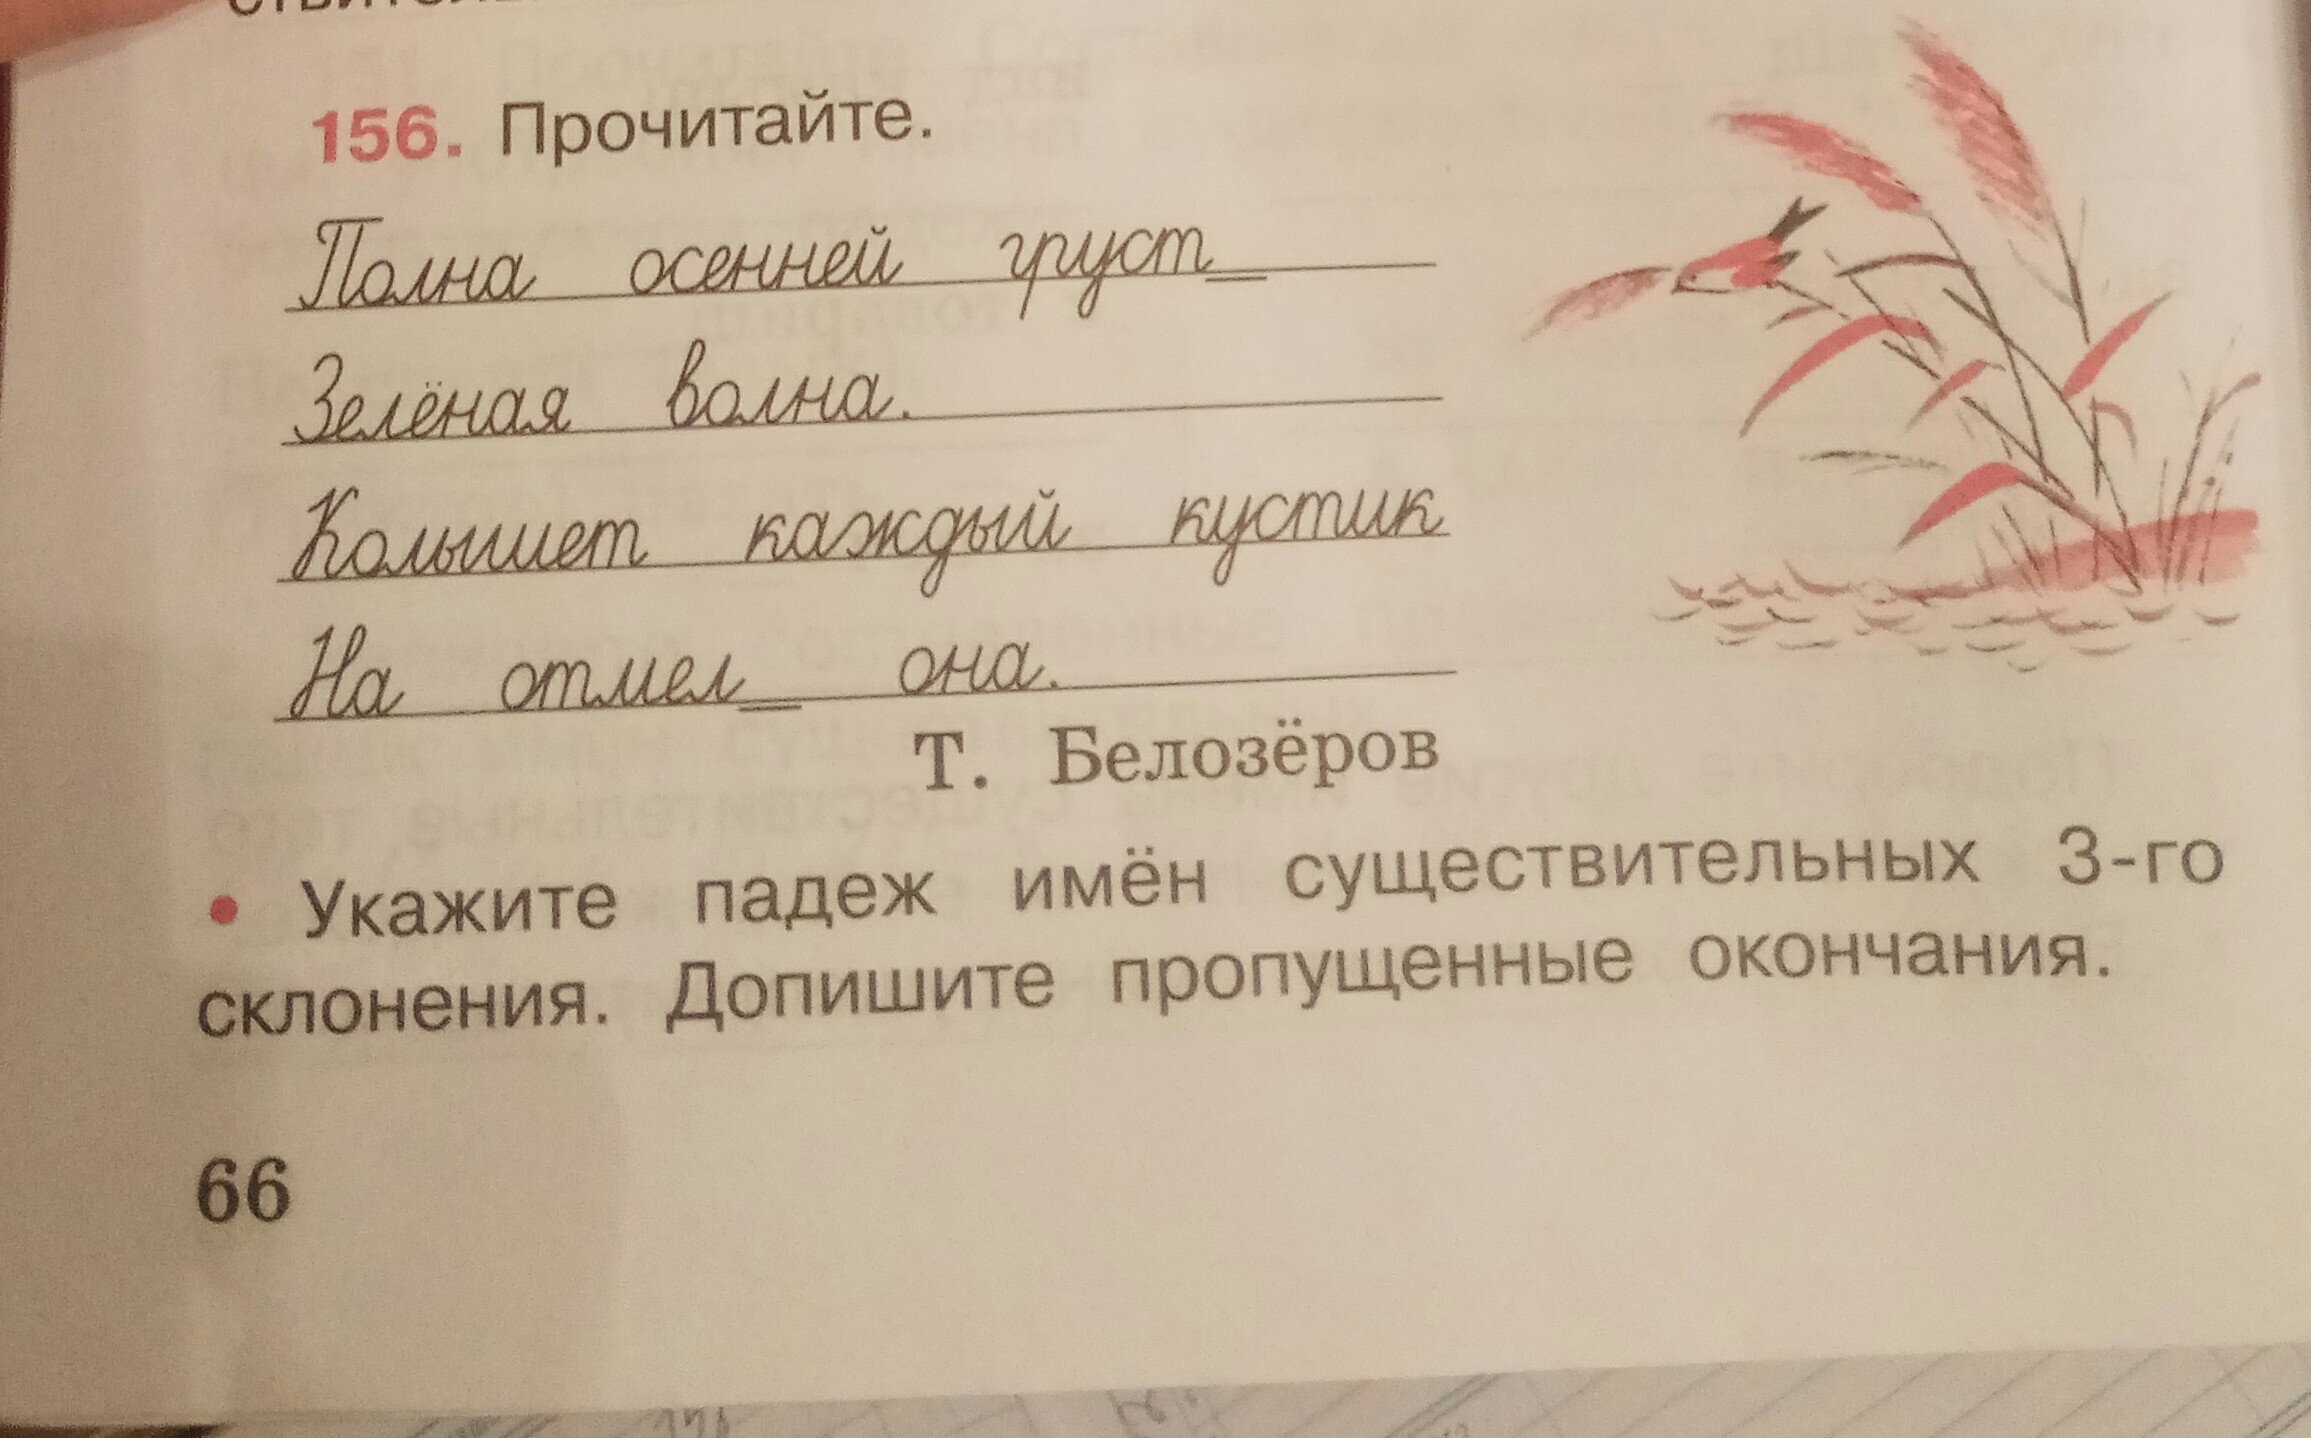 156. Прочитайте.
Полна осенней груст_
Зелёная волна.
Колышет каждый кустик
На отмел_ она.
Т. Белозёров
• Укажите падеж имён существительных 3-го
склонения. Допишите пропущенные окончания.
66